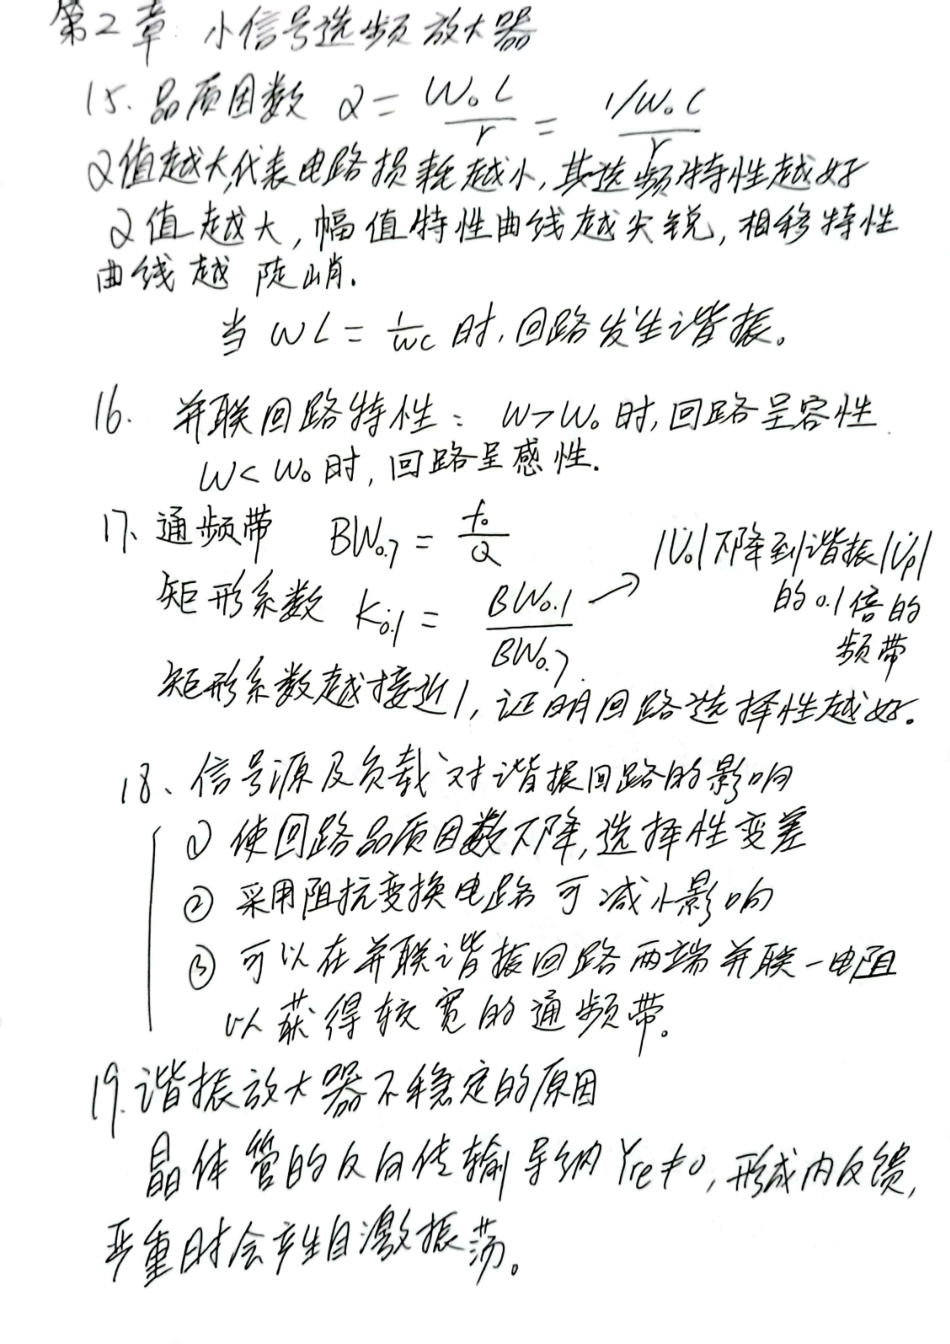 第2章 小信号选频放大器
15. 品质因数 Q = W₀L/r = 1/W₀C/r
Q值越大,代表电路损耗越小,其选频特性越好
Q值越大,幅值特性曲线越尖锐,相移特性
曲线越陡峭.
当 WL = 1/WC 时,回路发生谐振。
16. 并联回路特性: W>W₀时,回路呈容性
W<W₀时,回路呈感性.
17、通频带 BW₀.₇ = f₀/Q
|U̇₀|下降到谐振|U̇p|
的0.1倍的
频带
矩形系数 K₀.₁ = BW₀.₁/BW₀.₇ →
矩形系数越接近1,证明回路选择性越好。
18、信号源及负载对谐振回路的影响
① 使回路品质因数下降,选择性变差
② 采用阻抗变换电路可减小影响
③ 可以在并联谐振回路两端并联一电阻
以获得较宽的通频带。
19.谐振放大器不稳定的原因
晶体管的反向传输导纳Yre≠0,形成内反馈,
严重时会产生自激振荡。